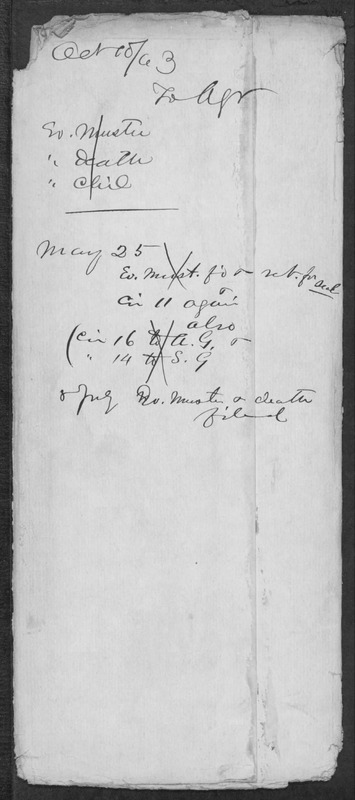 Oct 10/63
To Agt
Ev. Muster
" Death
" Chil
May 25
Ev. Must. fo & ret. for
Cir 11 again
also
(Cir 16 to A. G. &
" 14 to S. G
8 July Ev. Muster & death
filed